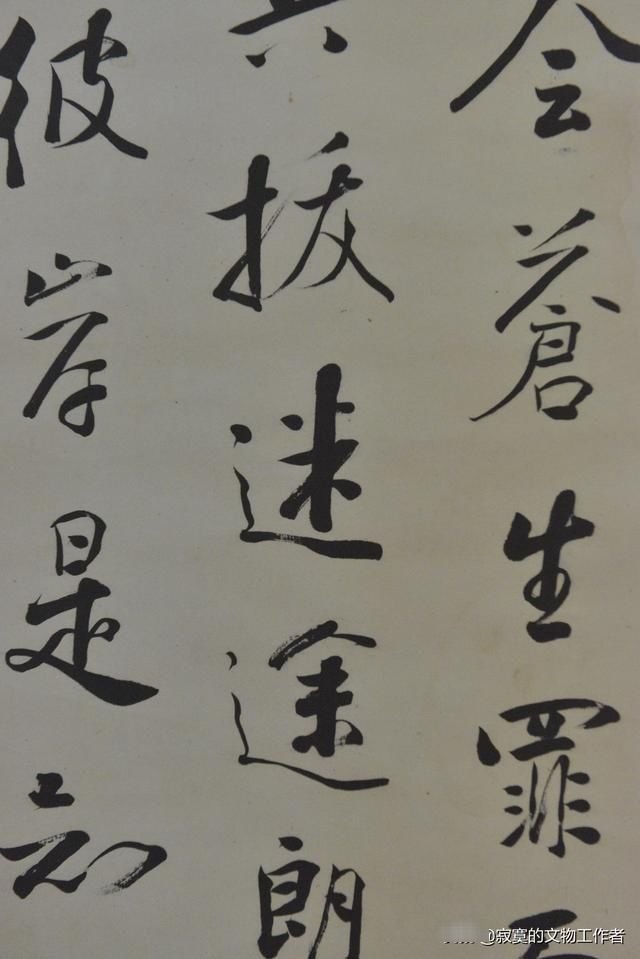 会蒼生罪
拔迷途朗
彼岸是
@寂寞的文物工作者